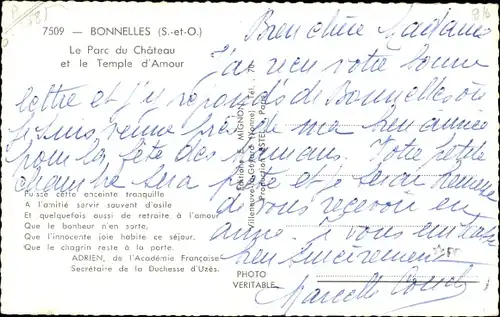 7509 — BONNELLES (S.-et-O.)
Le Parc du Château
et le Temple d'Amour
Bien chère Madame
J'ai reçu votre bonne
lettre et j'y réponds de Bonnelles où
je suis venue près de ma bien aimée
pour la fête des mamans. Votre petite
chambre sera prête et je serai heureuse
de vous recevoir en
Puisse cette enceinte tranquille
A l'amitié servir sauvent d'asile
Et quelquefois aussi de retraite à l'amour
Que le bonheur n'en sorte,
Que l'innocente joie habite ce séjour.
Que le chagrin reste à la porte.
ADRIEN, de l'Académie Française
Secrétaire de la Duchesse d'Uzès.
je vous embrasse
bien sincèrement
Marcelle
PHOTO
VERITABLE
Editions MIGNON
Villeneuve-la-Guyard (Yonne) Tél.
Production ESTEL Paris